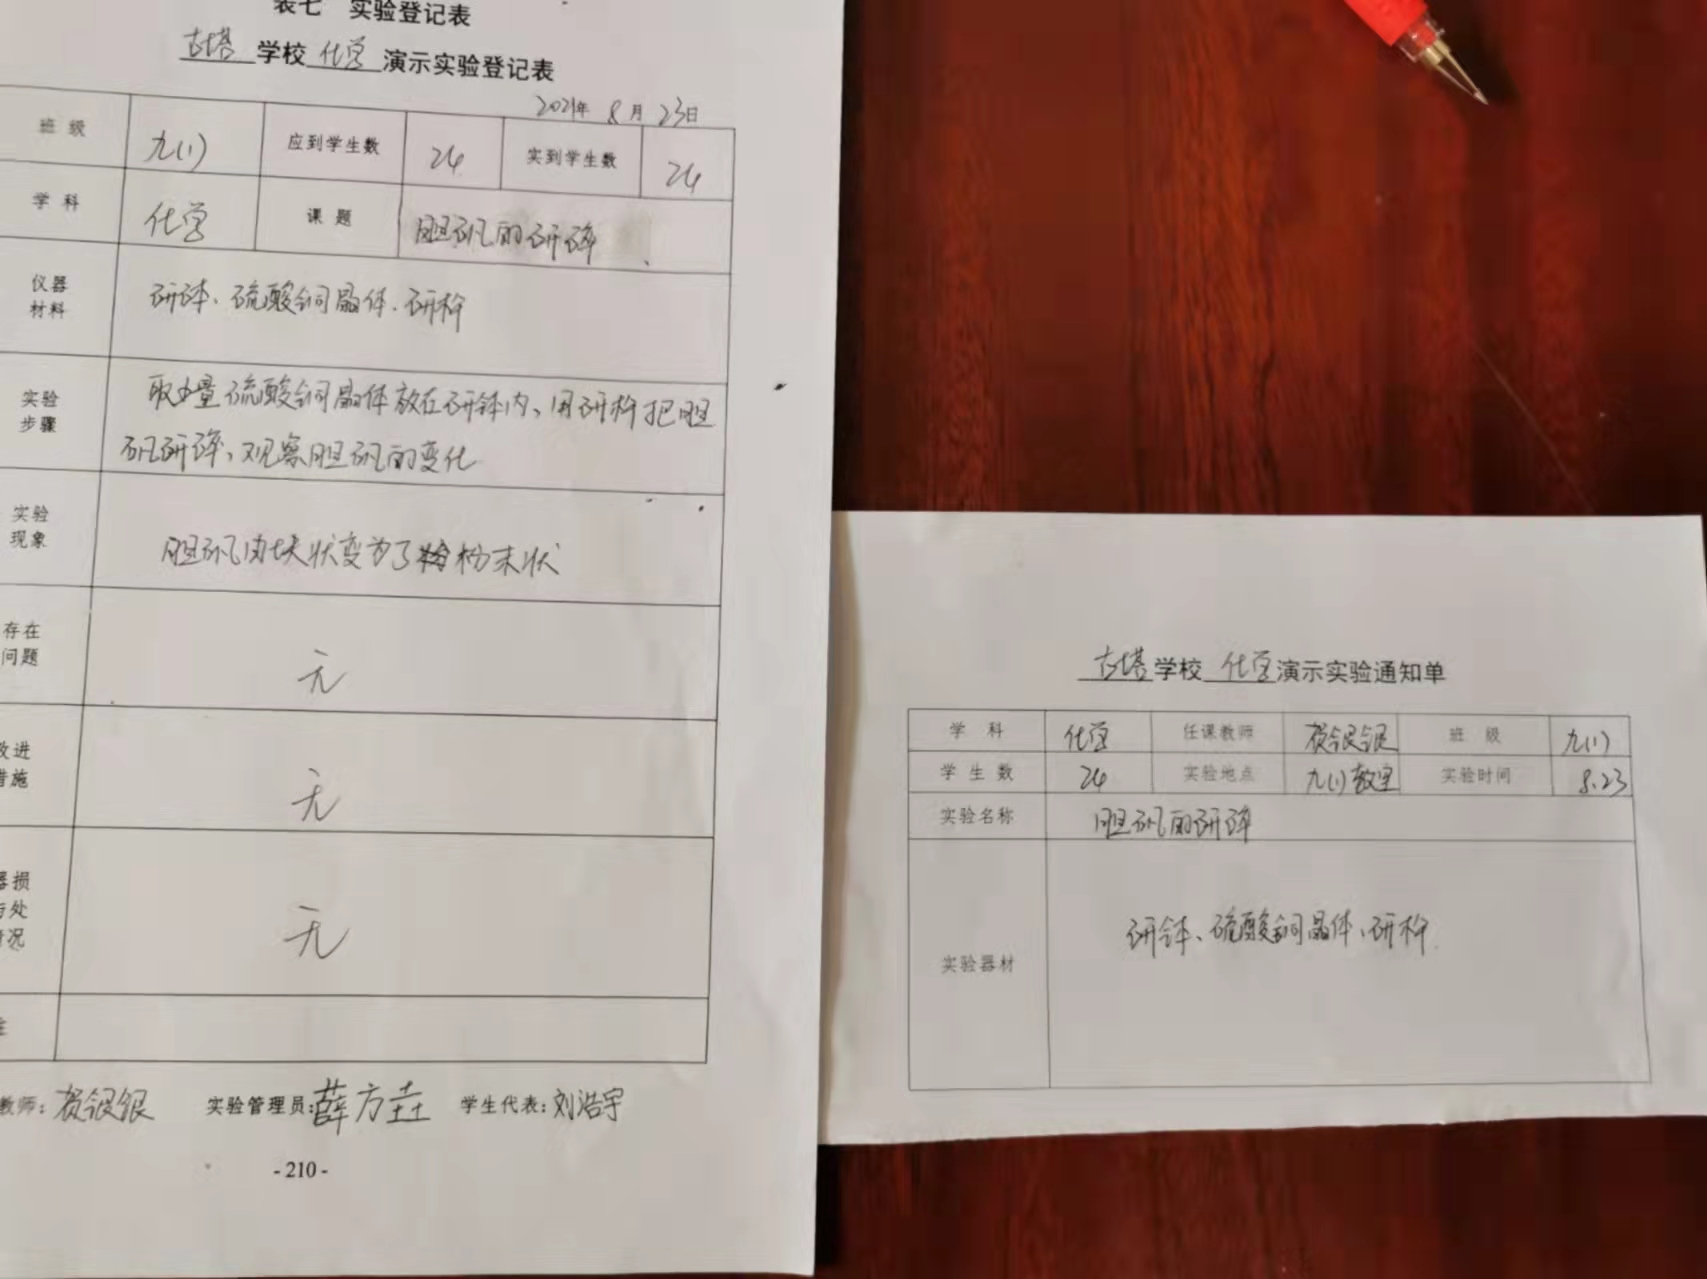 表七 实验登记表
古塔 学校 化学 演示实验登记表
2021年 8月 23日
班级 九(1) 应到学生数 24 实到学生数 24
学科 化学 课题 胆矾的研碎
仪器材料 研钵、硫酸铜晶体、研杵
实验步骤 取少量硫酸铜晶体放在研钵内、用研杵把胆
矾研碎、观察胆矾的变化
实验现象 胆矾由块状变为了粉末状
存在问题 无
改进措施 无
器损
与处
情况 无
注
教师: 银银 实验管理员: 薛方垚 学生代表: 刘浩宇
-210-
古塔 学校 化学 演示实验通知单
学科 化学 任课教师 银银 班级 九(1)
学生数 24 实验地点 九(1)教室 实验时间 8.23
实验名称 胆矾的研碎
实验器材 研钵、硫酸铜晶体、研杵